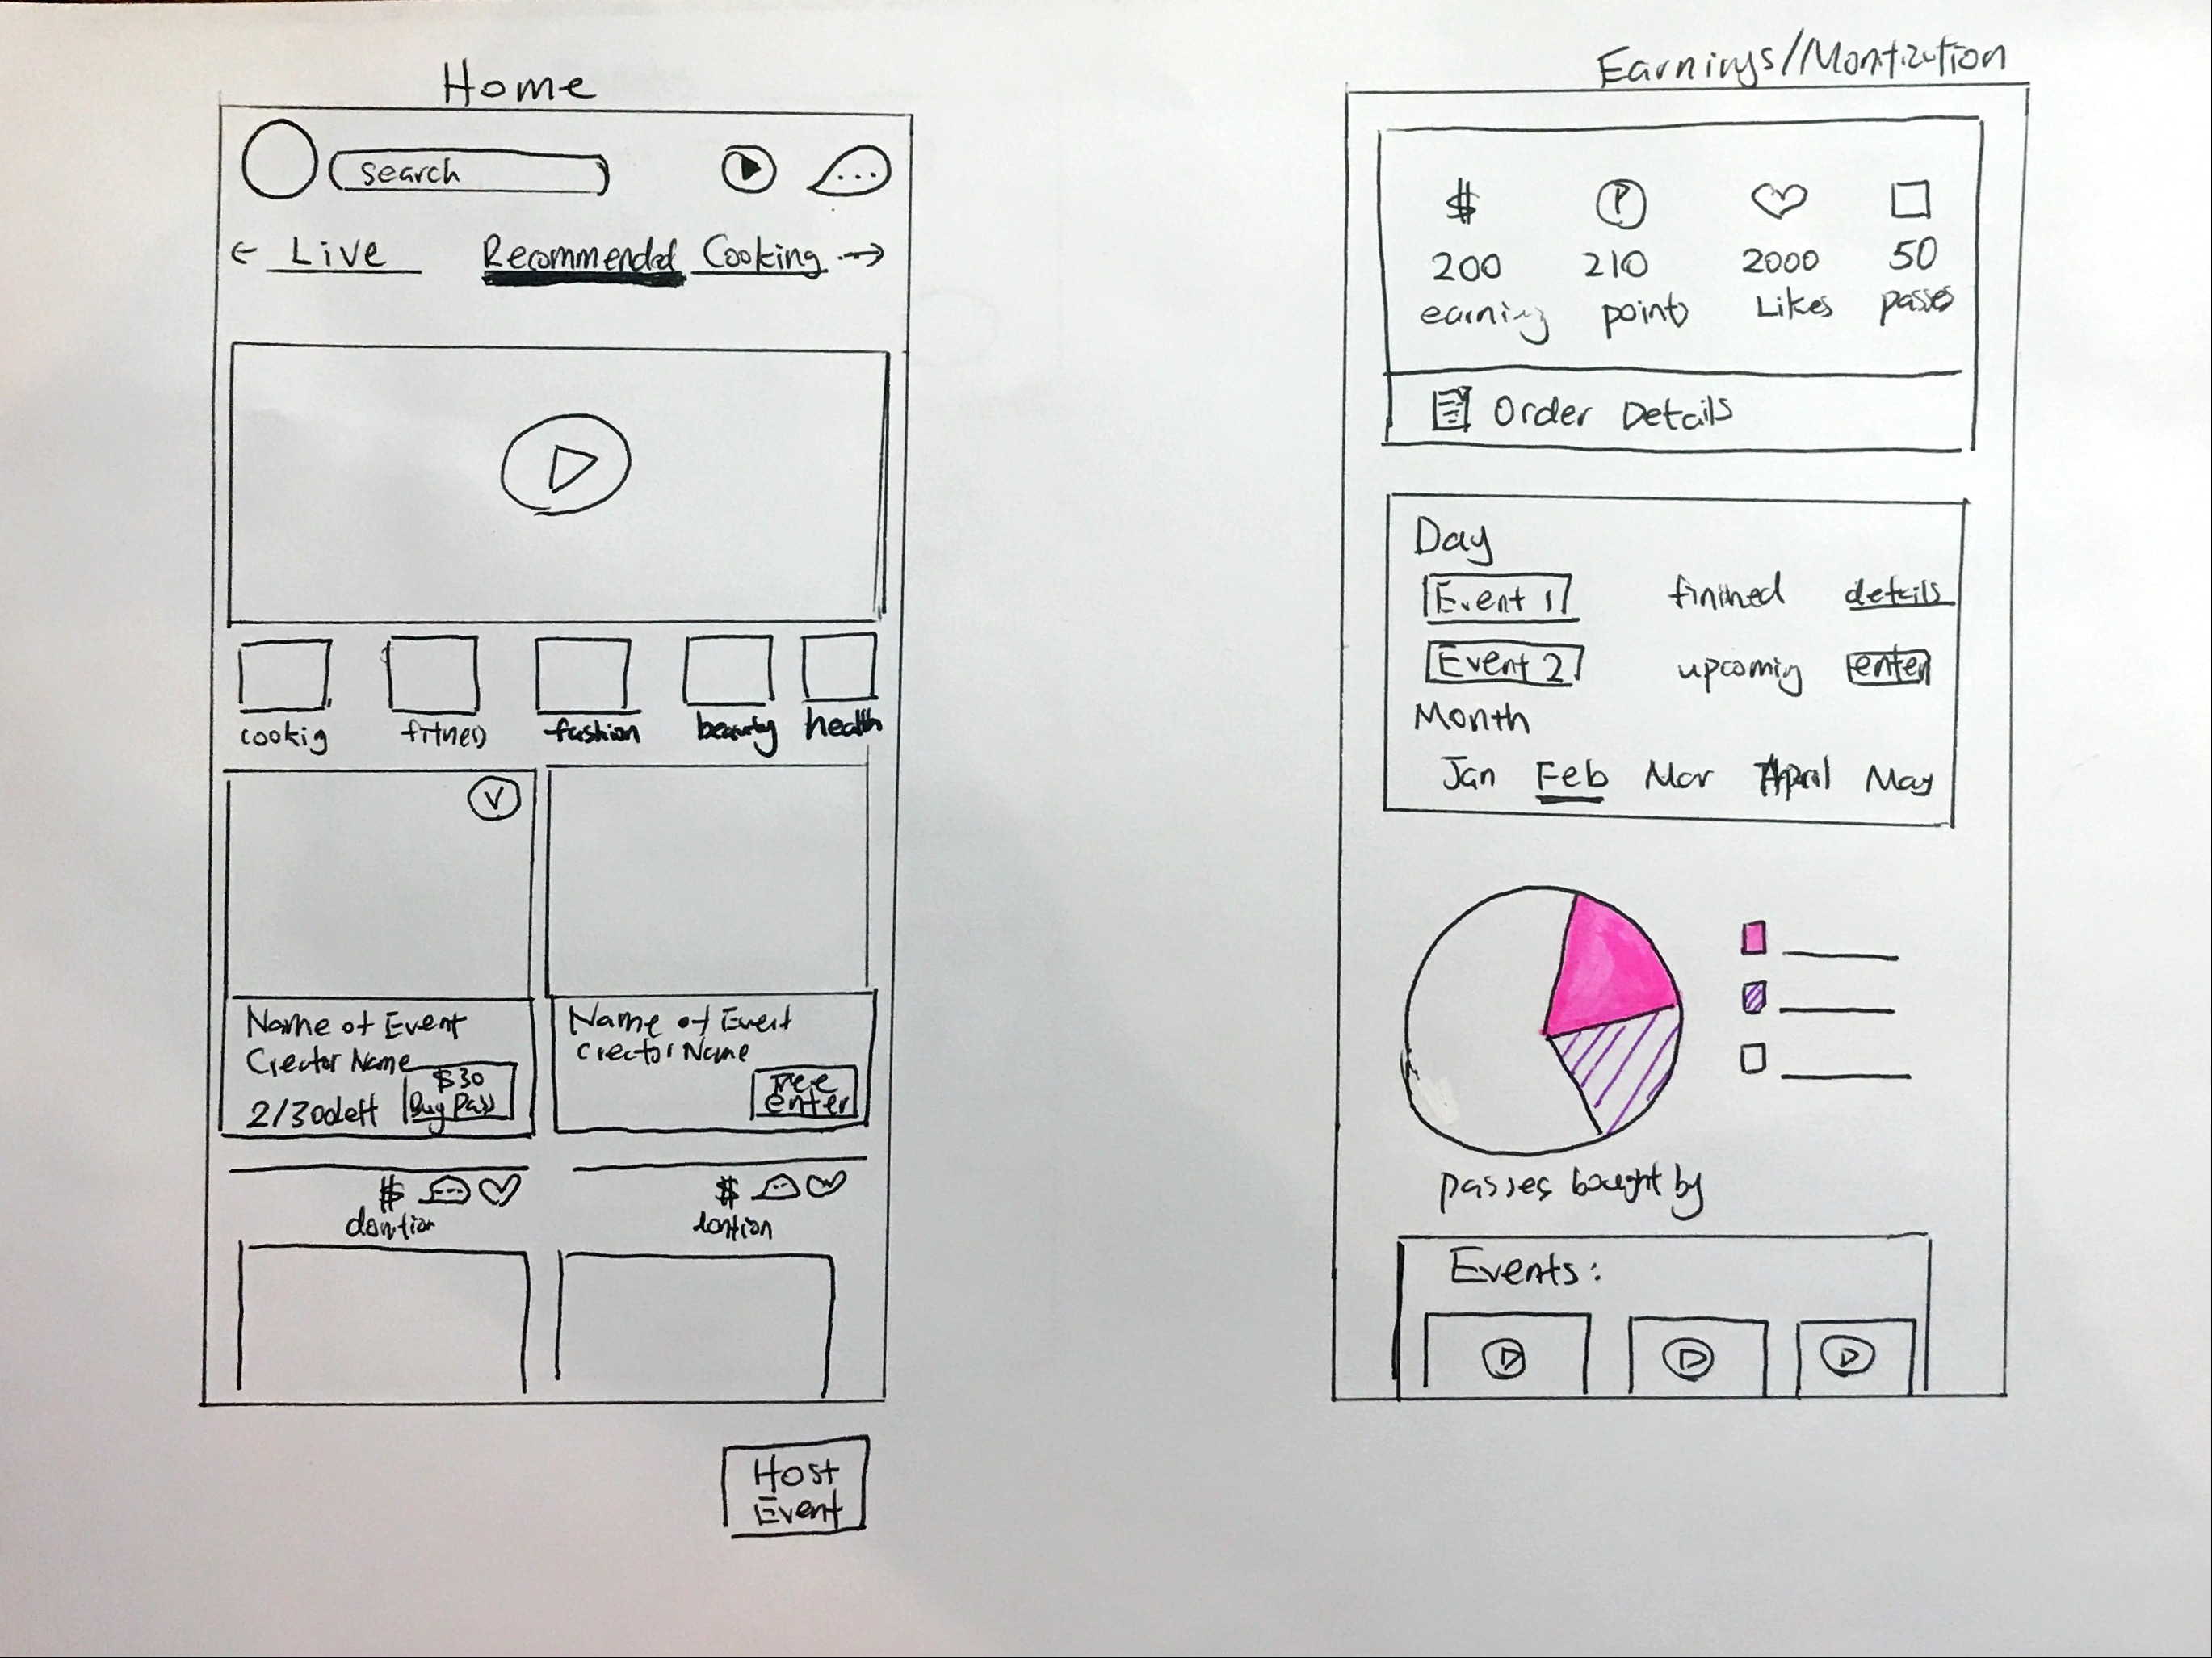 Home
search
← Live Recommended Cooking →
cookig fitness fashion beauty health
V
Name of Event
Creator Name
$30
2/30 left Buy Pass
Name of Event
Creator Name
Free
enter
$
$
Host
Event
Earnings//Montization
$ P
200 210 2000 50
earning points Likes passes
Order Details
Day
Event 1 finished details
Event 2 upcoming enter
Month
Jan Feb Mar April May
passes bought by
Events: